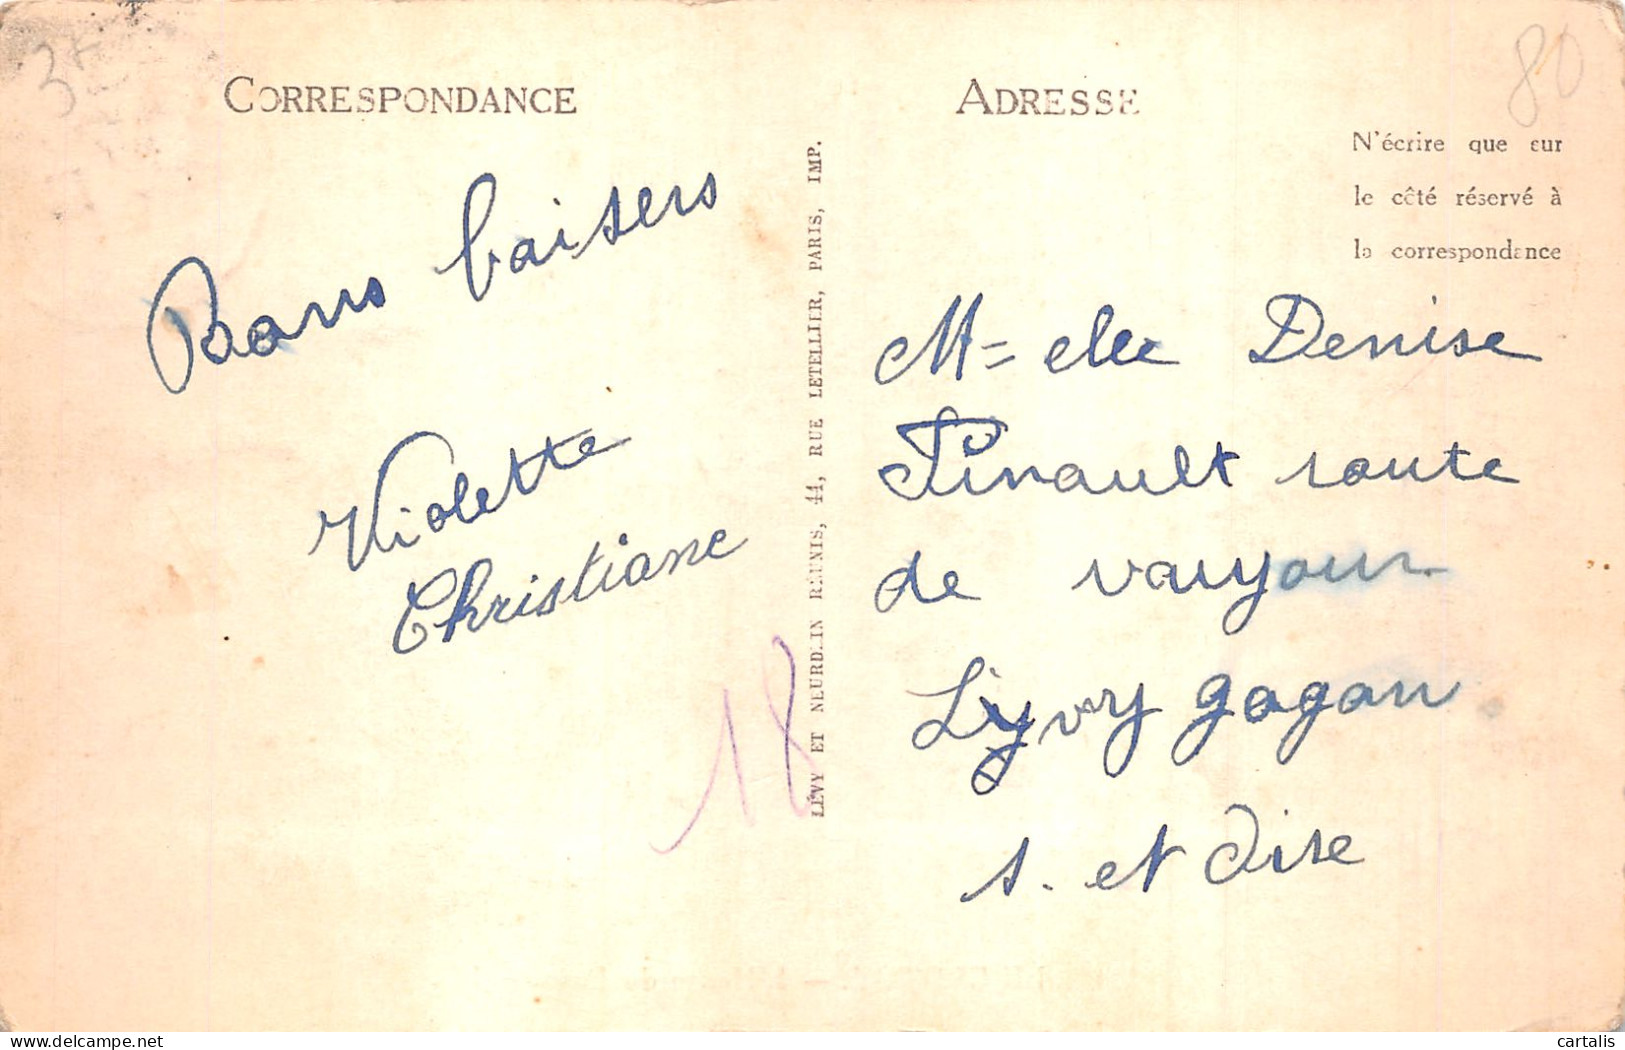 3
80
CORRESPONDANCE
ADRESSE
N'écrire que sur
le côté réservé à
la correspondance
Bons baisers
Violette
Christiane
18
LÉVY ET NEURDEIN RÉUNIS, 44, RUE LETELLIER, PARIS, IMP.
M=elle Denise
Pinault route
de vaujour
Livry gagan
s. et Oise
delcampe.net
cartalis